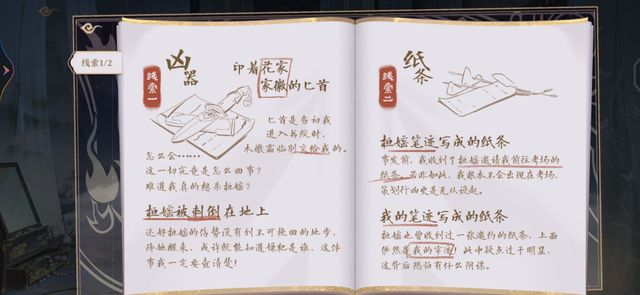 线索1/2
凶器
线索一
印着花家
家徽的匕首
匕首是当初我
进入书院时，
木微霜临别交给我的。
怎么会……
这一切究竟是怎么回事？
难道我真的想杀桓媱？
桓媱被刺倒在地上
还好桓媱的伤势没有到不可挽回的地步，
待她醒来，或许就能知道嫌犯是谁，这件
事我一定要查清楚！
纸条
线索二
桓媱笔迹写成的纸条
事发前，我收到了桓媱邀请我前往考场的
纸条，若非如此，我根本不会出现在考场，
策划行凶更是无从说起。
我的笔迹写成的纸条
桓媱也曾收到过一张邀约的纸条，上面
俨然是我的字迹！此中疑点过于明显，
这背后恐怕有什么阴谋。